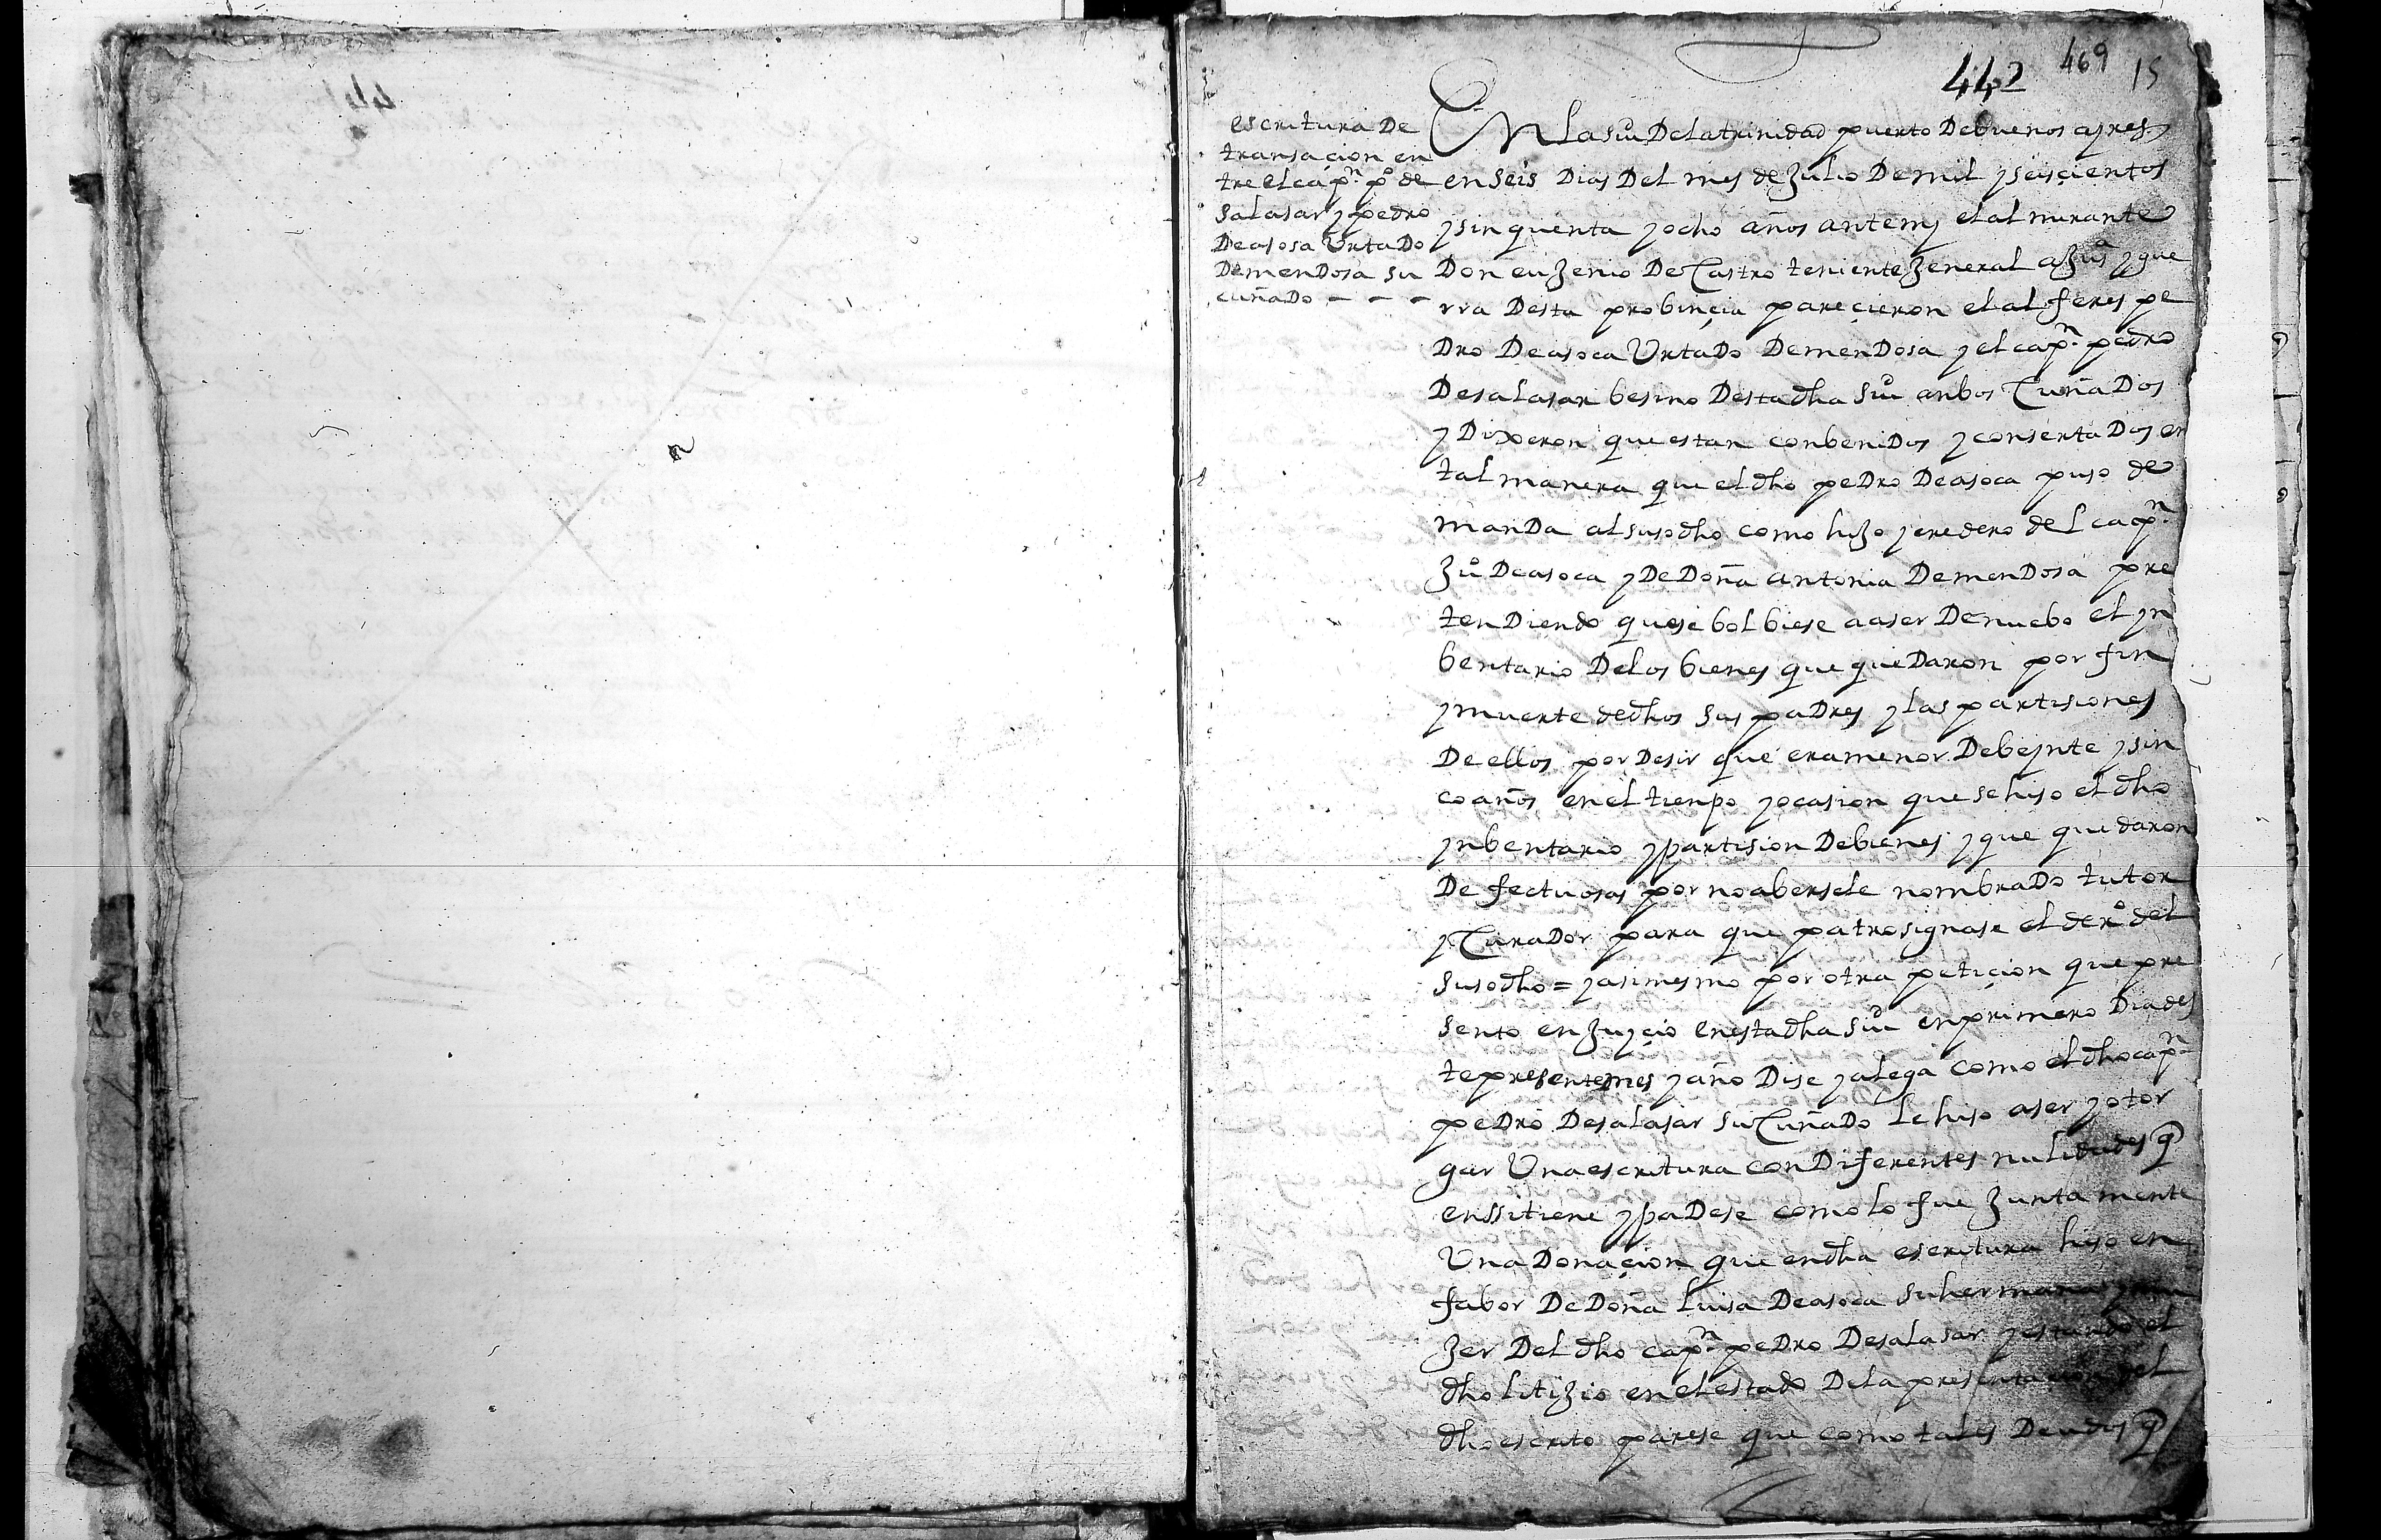 442 469 15
escritura De
transaçion en
tre el cap.n p.o de
salasar y pedro
De asosa Urtado
De mendosa su
cuñado - - -
En la siu.d De la trinidad puerto De buenos ayres
en seis Dias Del mes de Julio De mil y seisçientos
y sinquenta y ocho años ante my el almirante
Don euJenio De Castro teniente Jeneral a Jus.a y gue
rra Desta probinçia pareçieron el alferes pe
Dro De asoca Urtado De menDosa y el cap.n pedro
De salasar besino Desta dha siu.d anbos CuñaDos
y Dixeron que estan conbeniDos y consertaDos en
tal manera que el dho peDro De asoca puso de
manDa al susodho como hiJo y eredero del cap.n
Ju.o De asoca y De Doña antonia De menDosa pre
tenDiendo que se bolbiese a aser De nuebo el yn
bentario De los bienes que queDaron por fin
y muerte de dhos sus paDres y las partisiones
De ellos por Desir que era menor De beynte y sin
co años en el tienpo y ocasion que se hiso el dho
ynbentario y partision De bienes y que quedaron
Defectuosas por no abersele nombraDo tutor
y CuraDor para que patrosignase el der.o del
susodho = y asimesmo por otra petiçion que pre
sento en Juyçio en esta dha siu.d en primero Dia des
te presente mes y año Dise y alega como el dho cap.n
peDro De salasar su CuñaDo le hiso aser y otor
gar Una escritura con Diferentes nulidades q
en ssi tiene y paDese como lo fue Juntamente
Una Donaçion que en dha escritura hiso en
fabor De Doña luisa De asoca su hermana y mu
Jer Del dho cap.n peDro De salasar y estando el
dho litiJio en el estado De la presentaçion del
dho escrito parese que como tales Deudos q